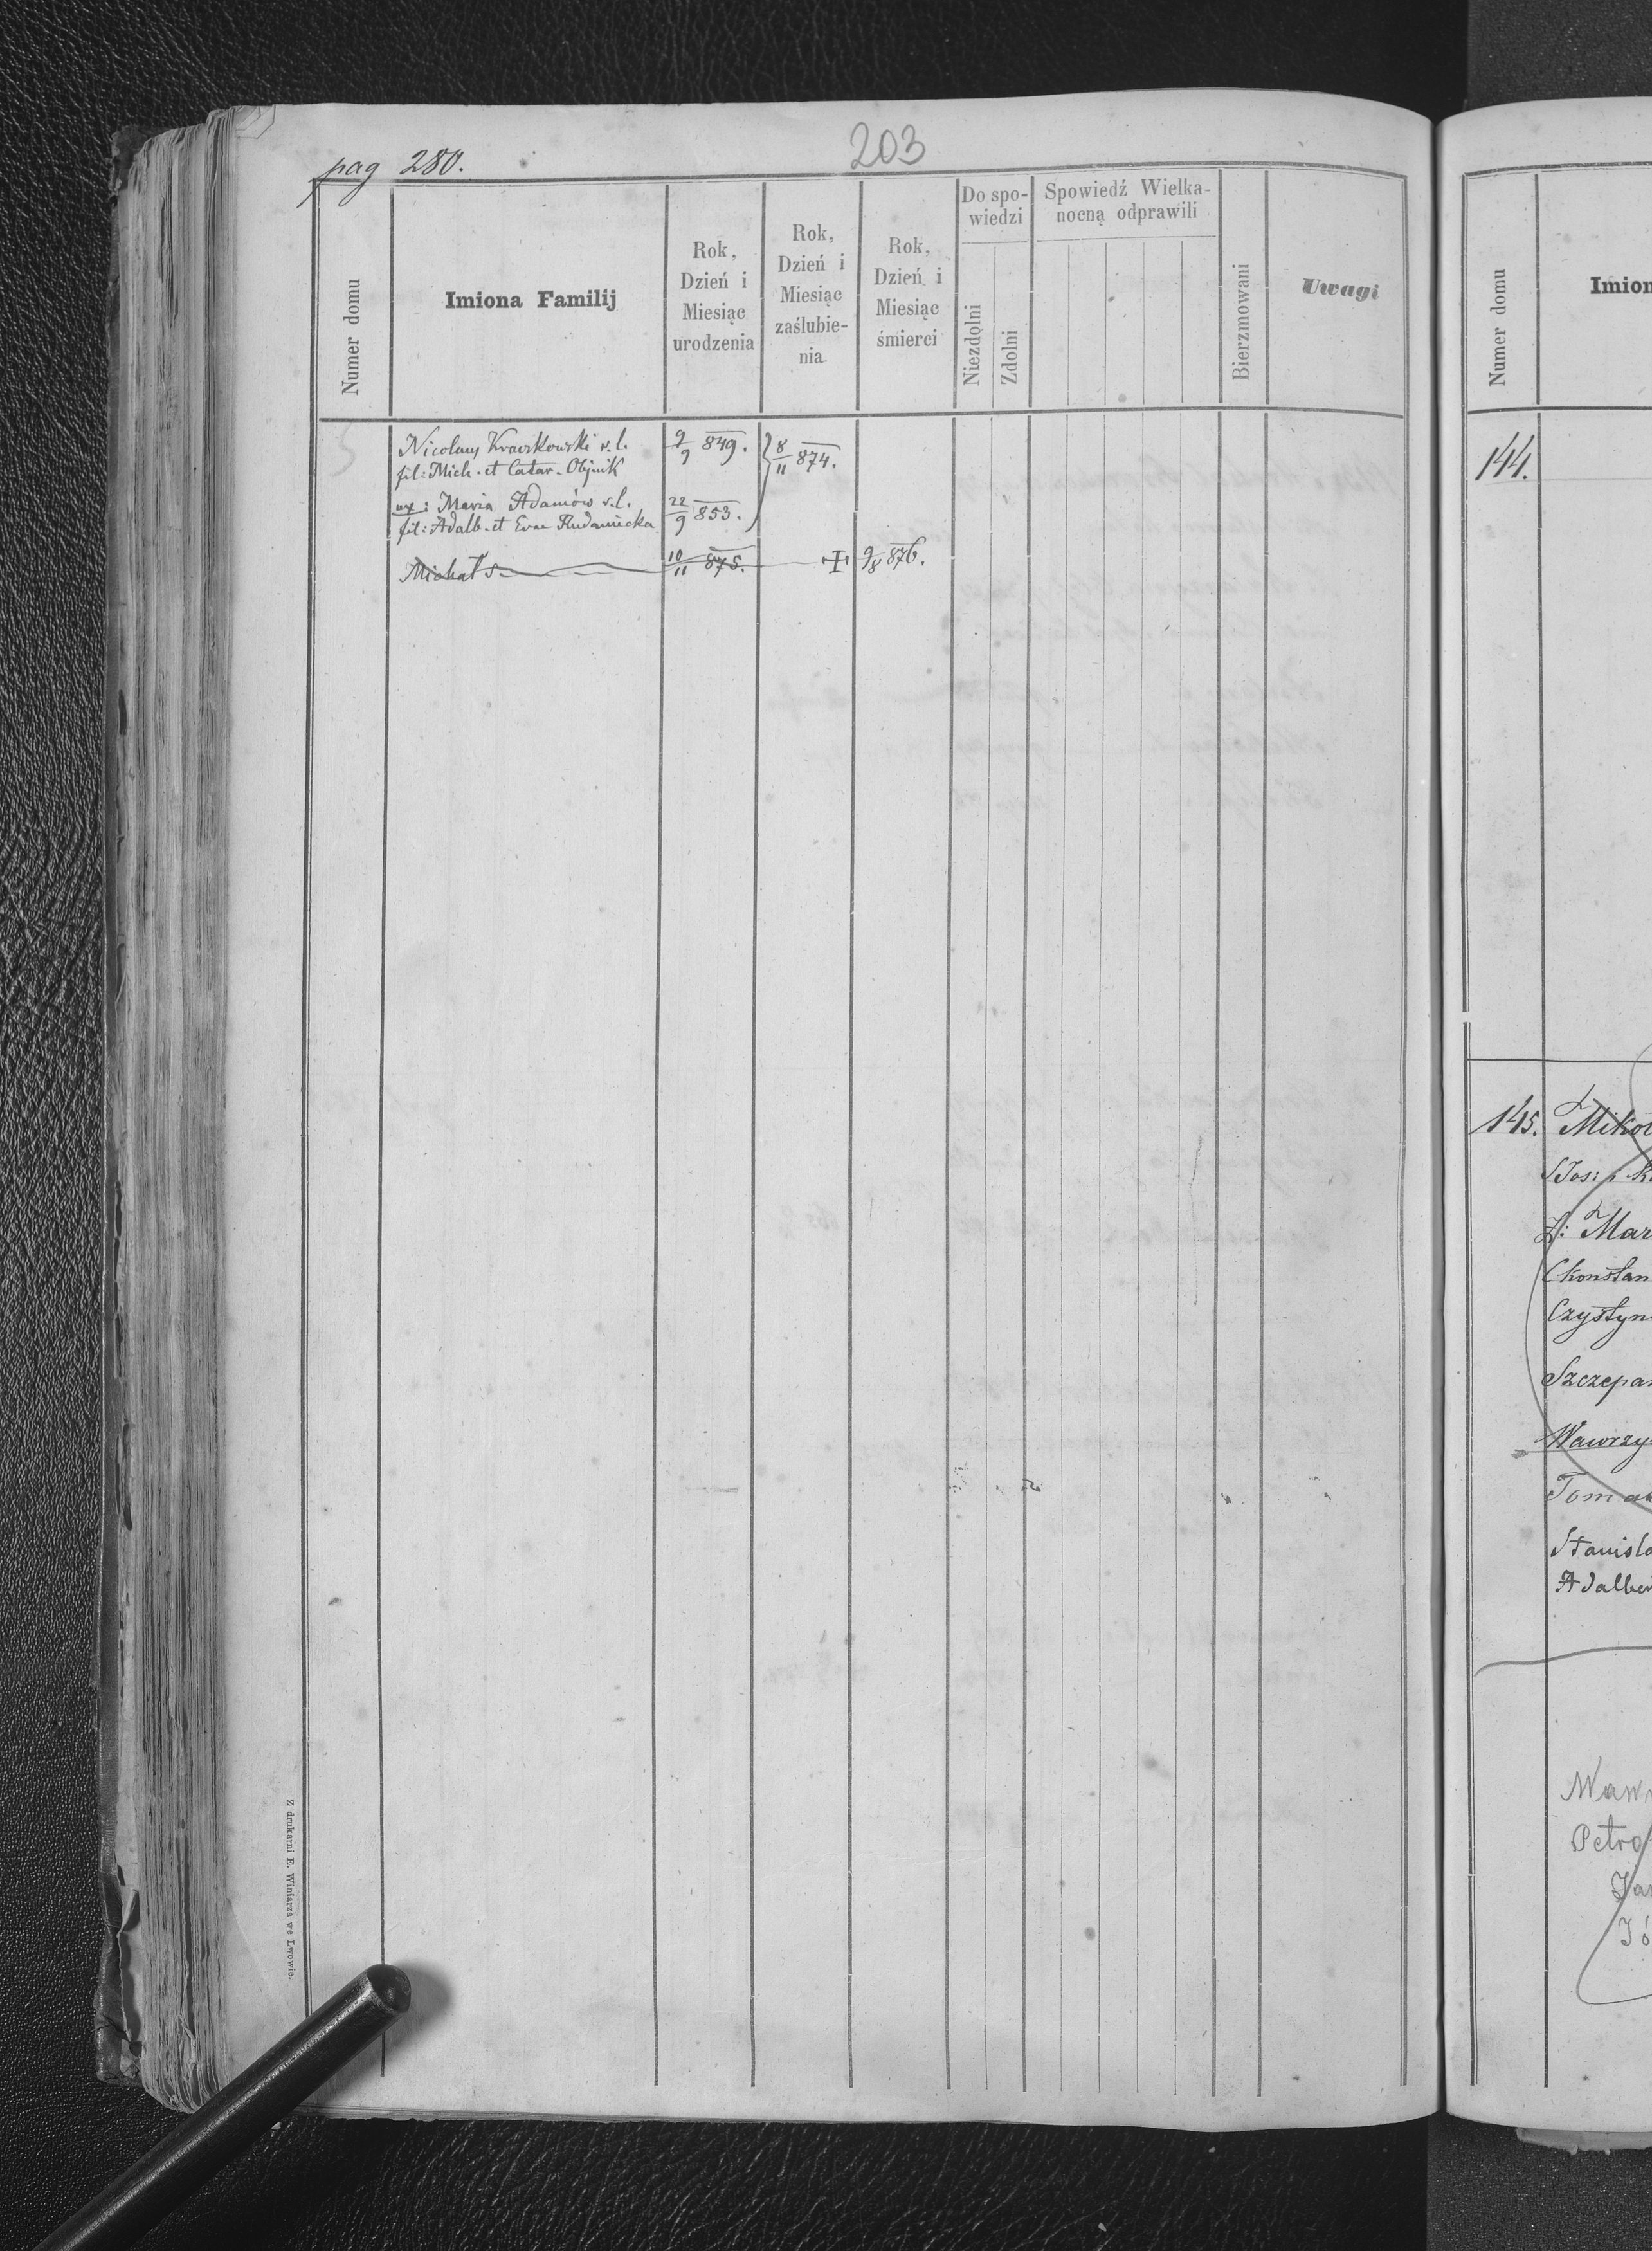 203
pag 280.
Numer domu
Imiona Familij
Rok,
Dzień i
Miesiąc
urodzenia
Rok,
Dzień i
Miesiąc
zaślubie-
nia
Rok,
Dzień i
Miesiąc
śmierci
Do spo-
wiedzi
Niezdolni
Zdolni
Spowiedź Wielka-
nocną odprawili
Bierzmowani
Uwagi
Nicolaus Kraczkowski r. l. 9/9 849. 8/11 874.
fil: Mich. et Catar. Olijnik
ux: Maria Adamów r. l. 22/9 853.
fil: Adalb. et Evae Rudawiecka
Michał s 10/11 875. 9/8 876.
Z drukarni E. Winiarza we Lwowie.
Numer domu
Imion
144.
145. Mikoł
Z: Mar
Konstan
Czystyn
Szczepan
Wawrzy
Toma
Stanisla
Adalber
Wawr
Petro
Jan
Jó